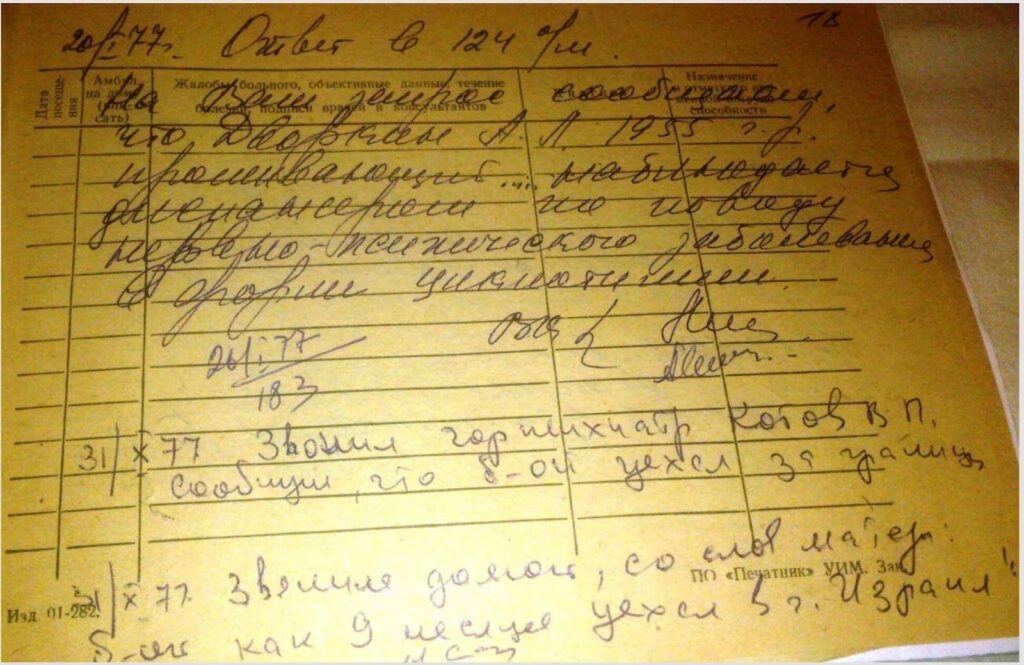 18
20/I 77г. Ответ в 124 о/м.
Дата посеще-ния
Амбул. на дому (впи-сать)
Жалобы больного, объективные данные, течение болезни, подписи врачей и консультантов
Назначение
способности
На Ваш запрос сообщаем,
что Дворкин А. Л. 1955 г.р.
проживающий ... наблюдается
диспансером по поводу
нервно-психического заболевания
в форме циклотимии.
20/I 77
183
31/X 77 Звонил горпсихиатр Котов В П,
сообщил, что б-ой уехал за границу
31/X 77 Звонила домой, со слов матери:
ПО «Печатник» УИМ. Зак.
Изд. 01-282.
б-ой как 9 месяцев уехал в г. Израиль